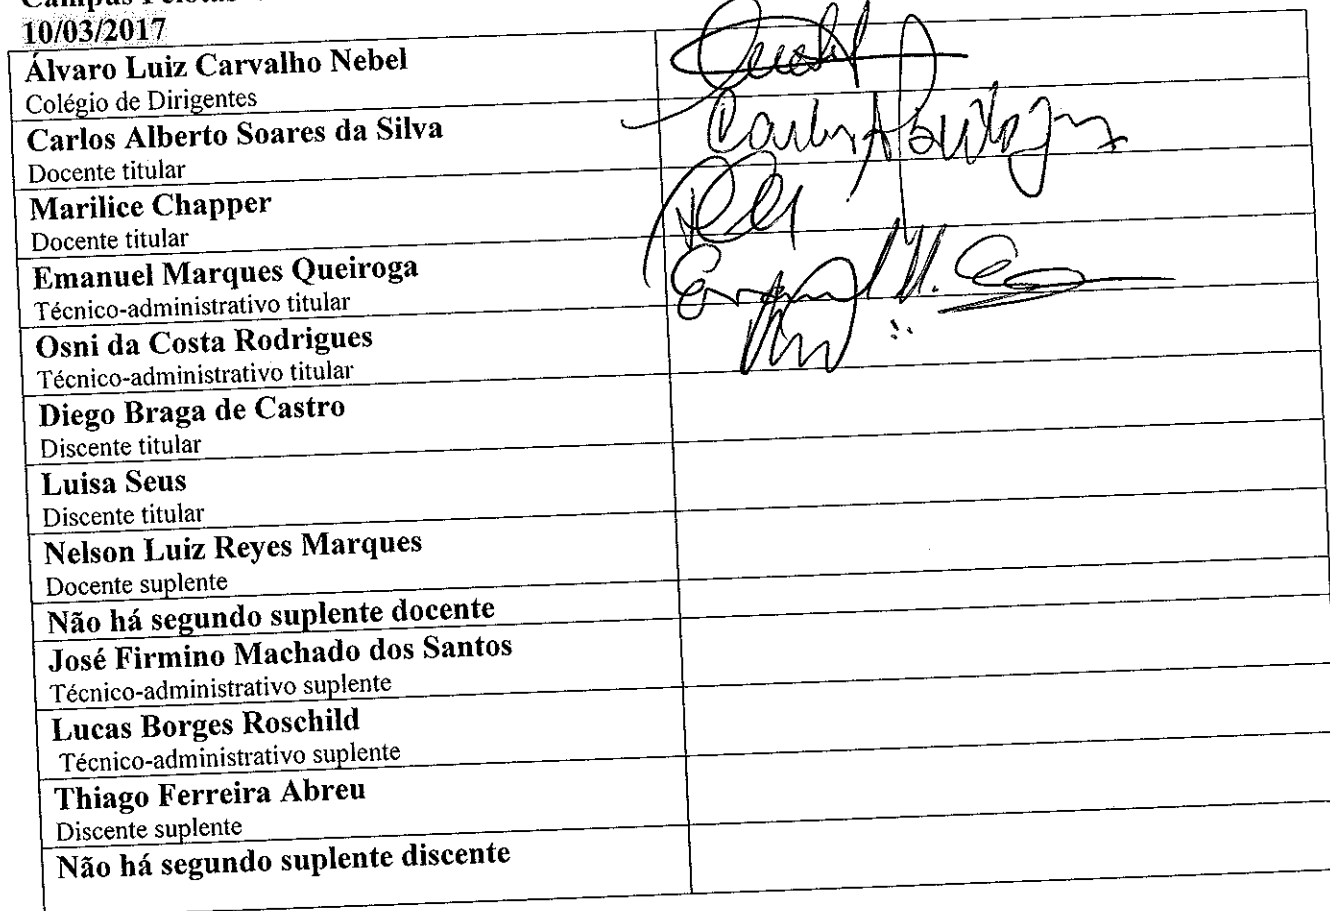 10/03/2017
Álvaro Luiz Carvalho Nebel
Colégio de Dirigentes
Carlos Alberto Soares da Silva
Docente titular
Marilice Chapper
Docente titular
Emanuel Marques Queiroga
Técnico-administrativo titular
Osni da Costa Rodrigues
Técnico-administrativo titular
Diego Braga de Castro
Discente titular
Luisa Seus
Discente titular
Nelson Luiz Reyes Marques
Docente suplente
Não há segundo suplente docente
José Firmino Machado dos Santos
Técnico-administrativo suplente
Lucas Borges Roschild
Técnico-administrativo suplente
Thiago Ferreira Abreu
Discente suplente
Não há segundo suplente discente